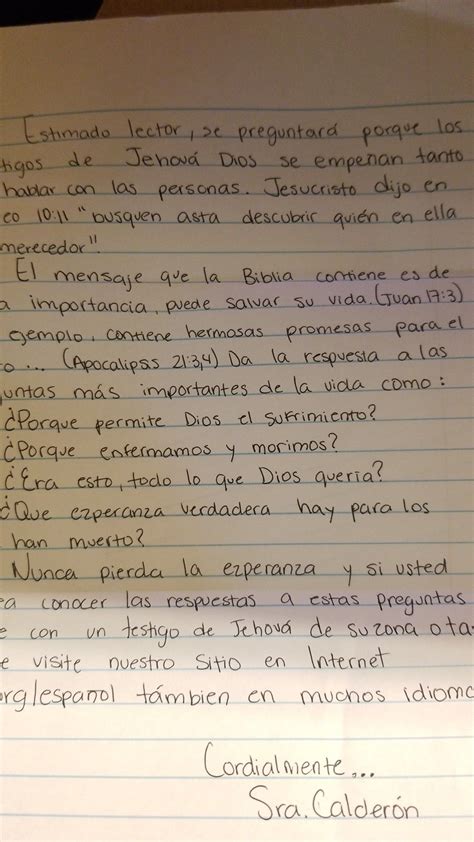 Estimado lector, se preguntará porque los
tigos de Jehová Dios se empeñan tanto
hablar con las personas. Jesucristo dijo en
eo 10:11 "busquen asta descubrir quién en ella
merecedor".
El mensaje que la Biblia contiene es de
a importancia, puede salvar su vida. (Juan 17:3)
ejemplo, contiene hermosas promesas para el
o... (Apocalipsis 21:3,4) Da la respuesta a las
untas más importantes de la vida como:
¿Porque permite Dios el sufrimiento?
¿Porque enfermamos y morimos?
¿Era esto, todo lo que Dios queria?
¿Que ezperanza verdadera hay para los
han muerto?
Nunca pierda la ezperanza y si usted
ea conocer las respuestas a estas preguntas
e con un testigo de Jehová de su zona o ta
e visite nuestro Sitio en Internet
org/espanol támbien en muchos idioma
Cordialmente...
Sra. Calderón